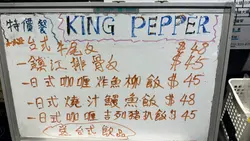 特價餐 KING PEPPER
台式牛尾飯 $48
一鎮江排骨飯 $45
一日式咖喱炸魚柳飯 $45
一日式燒汁鰻魚飯 $48
一日式咖喱吉列豬扒飯 $45
送台式飲品